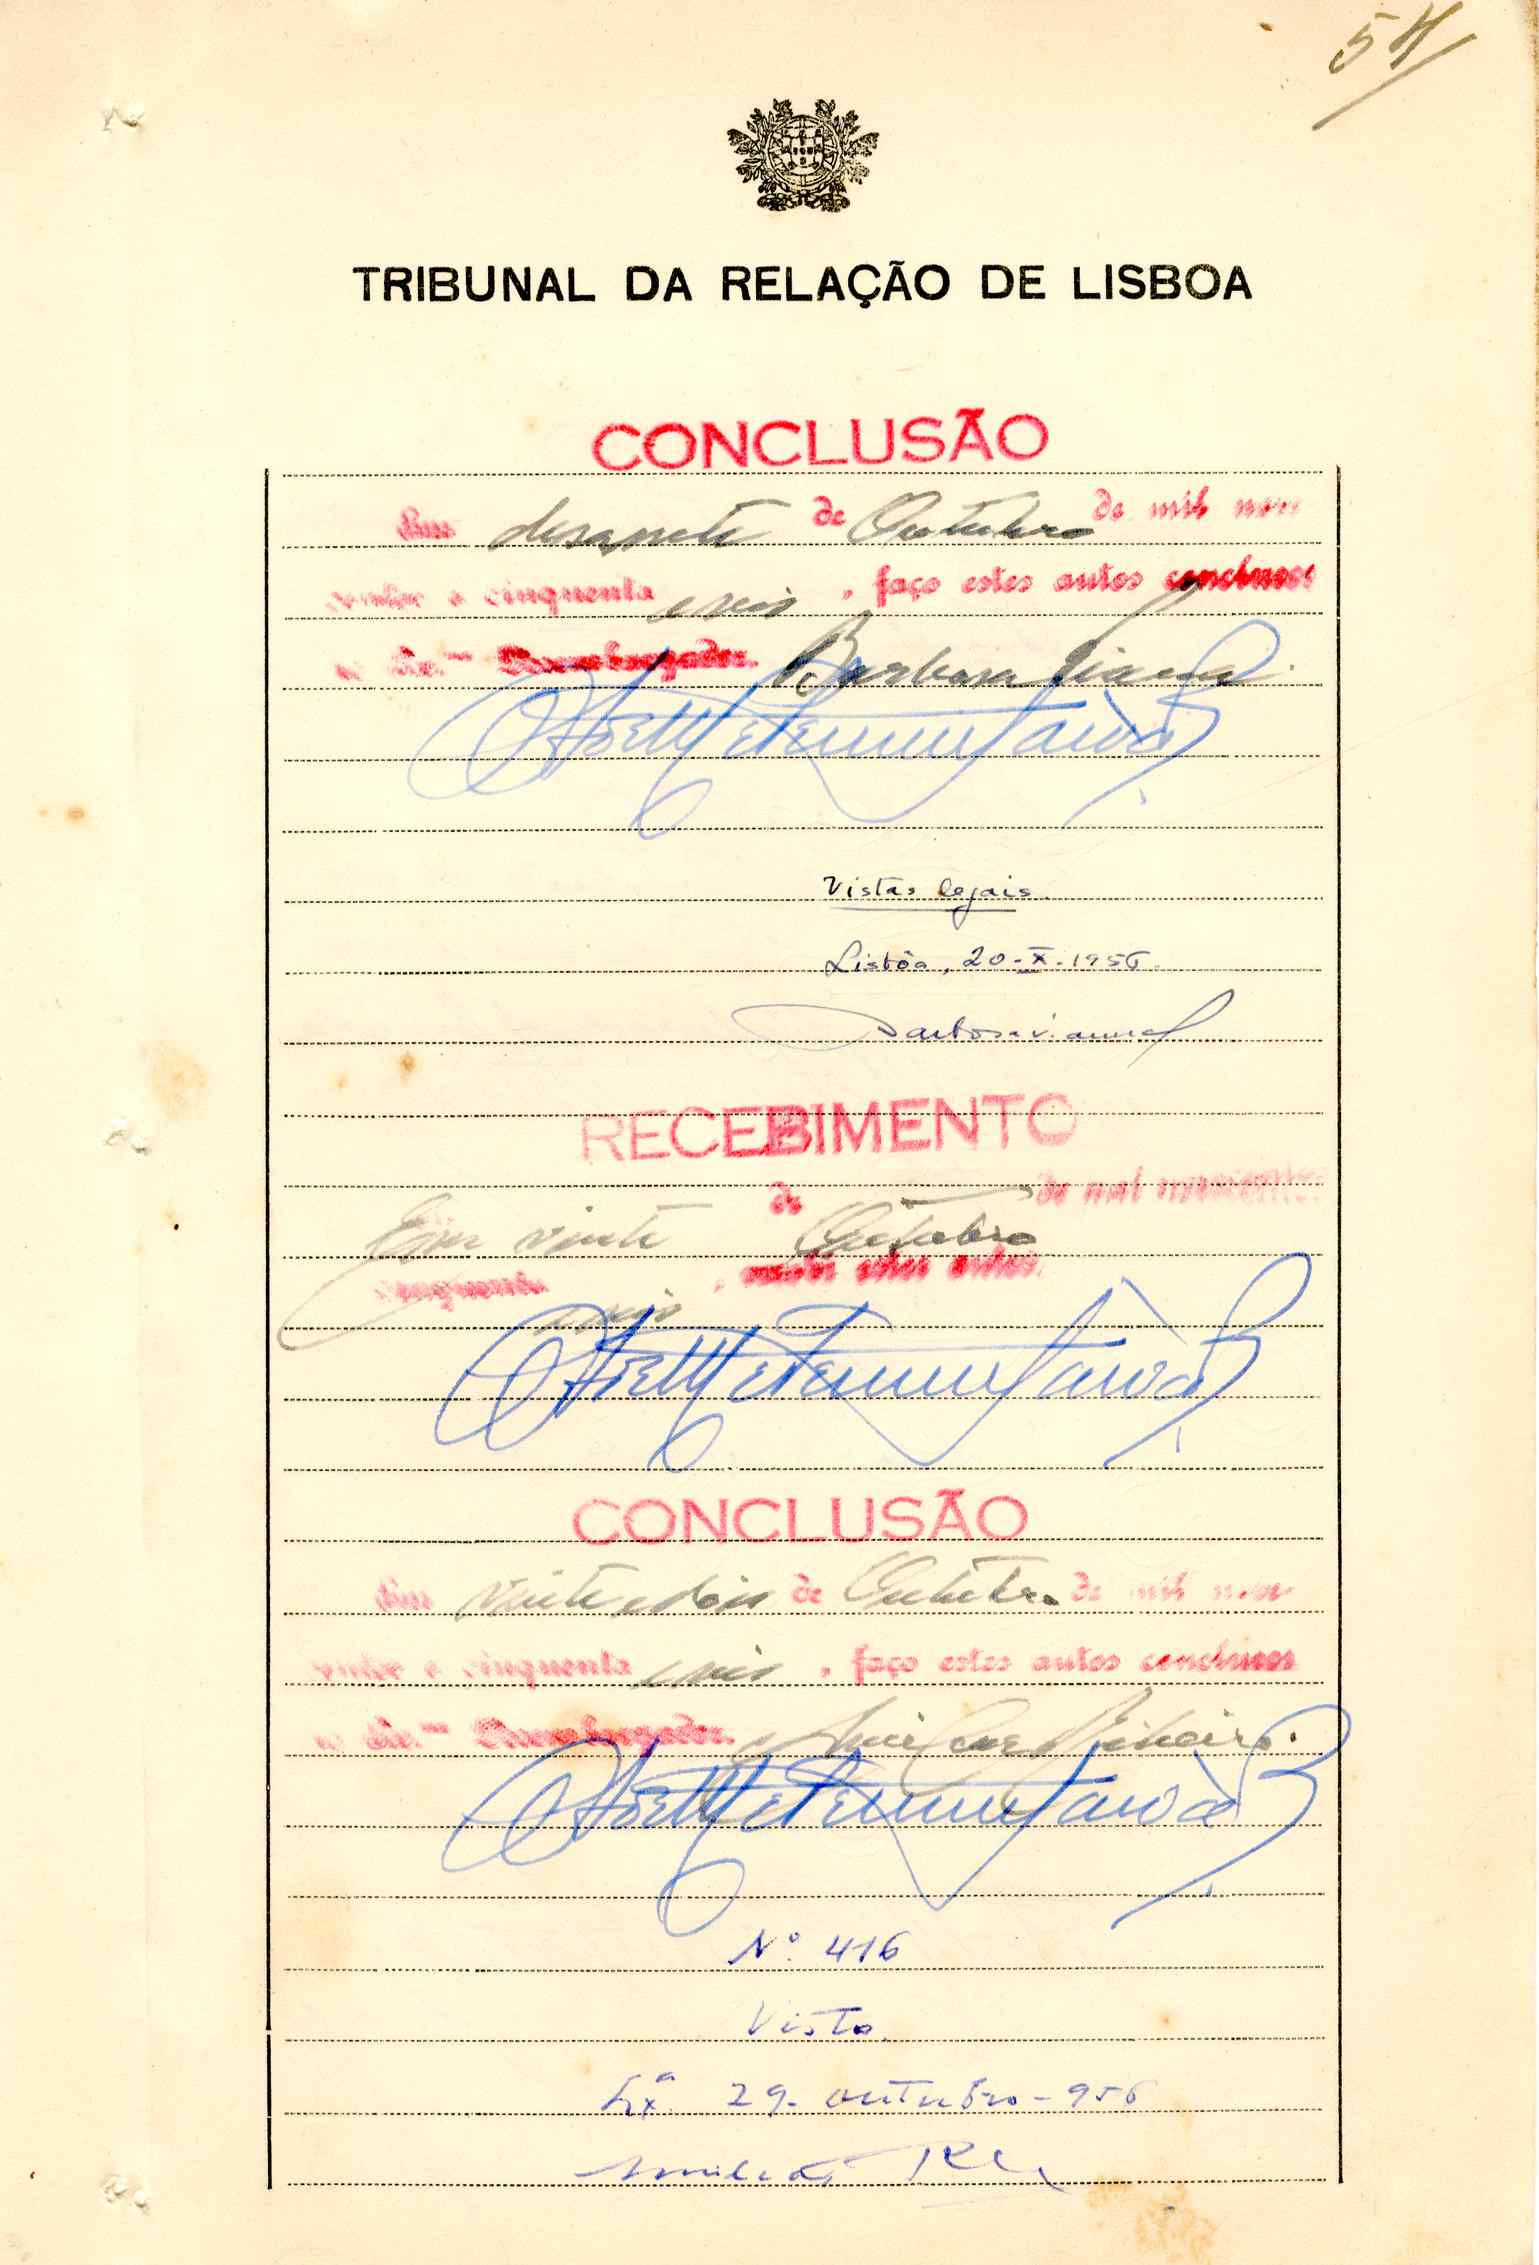 54
TRIBUNAL DA RELAÇÃO DE LISBOA
CONCLUSÃO
Em desassete de Outubro de mil nove
centos e cinquenta e seis, faço estes autos conclusos
ao Ex.mo Desembargador Barbosa Viana.
Vistas legais.
Lisbôa, 20-X-1956.
Barbosa Viana
RECEBIMENTO
Em vinte de Outubro de mil novecentos
cinquenta e seis, recebi estes autos.
CONCLUSÃO
Em vinte e dois de Outubro de mil nove
centos e cinquenta e seis, faço estes autos conclusos
ao Ex.mo Desembargador Amilcar Ribeiro.
Nº 416
Visto.
Lxª 29-outubro-956